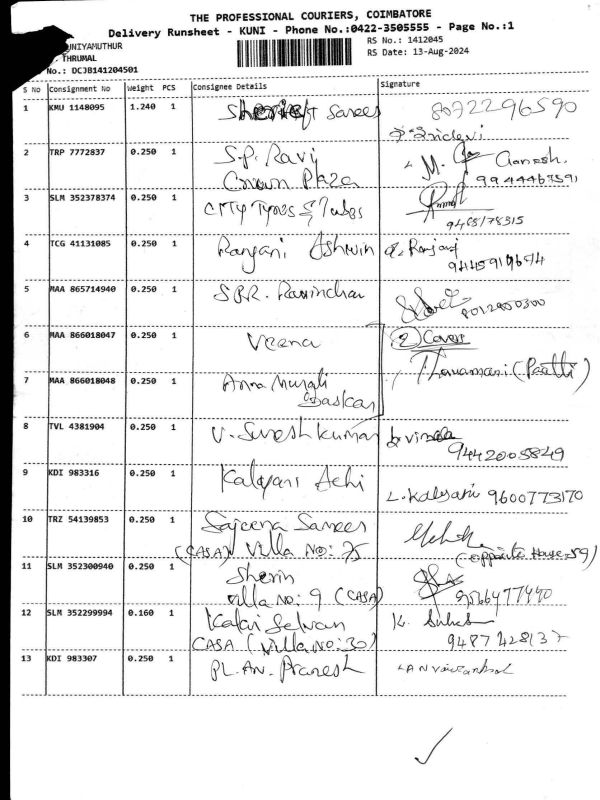 THE PROFESSIONAL COURIERS, COIMBATORE
Delivery Runsheet - KUNI - Phone No.:0422-3505555 - Page No.:1
UNIYAMUTHUR
RS No.: 1412045
THRUMAL
RS Date: 13-Aug-2024
No.: DCJB141204501
S No Consignment No Weight PCS Consignee Details Signature
1 KMU 1148095 1.240 1 Sarees 8072296590
Sridevi
2 TRP 7772837 0.250 1 S.P. Ravi M. Ganesh.
Crown Plaza
3 SLM 352378374 0.250 1 CITY Tyres & Tubes
9465178315
4 TCG 41131085 0.250 1 Ranjani Ashwin
5 MAA 865714940 0.250 1 SPR. Ravichan
6 MAA 866018047 0.250 1 Veena 2 Covers
7 MAA 866018048 0.250 1 Anna Murali (Paatti)
Baskar
8 TVL 4381904 0.250 1 V. Suresh kumar
9442005849
9 KDI 983316 0.250 1 Kalyani Achi L. Kalyani 9600773170
10 TRZ 54139853 0.250 1 Sajeena Sarees
(CASA) Villa No: 75 (opposite House-59)
11 SLM 352300940 0.250 1 Sherin
Villa No: 9 (CASA) 9566477440
12 SLM 352299994 0.160 1 Kalai Selvan K.
CASA (Villa No:30) 9487428137
13 KDI 983307 0.250 1 PL. AN. Pranesh